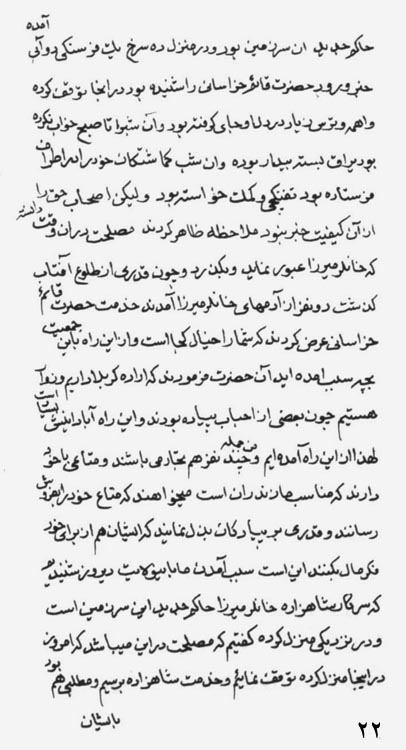 آمده
حاکم جدید ان سرزمین بود و در منزل ده سرخ یک فرسنگی دو آبی
خبر ورود حضرت قائم خراسانی را شنیده بود در اینجا توقف کرده
واهمه و ترس بسیار در دل او جای گرفته بود و آن شب را تا صبح خواب نکرده
بود یراق بسته بیدار بوده و ان شب گماشتگان خود را در اطراف
فرستاده بود تفنگچی و کمک خواسته بود ولیکن اصحاب حق را
از آن کیفیت خبر نبود ملاحظه ظاهر کردند مصلحت در ان وقت دانسته
که خانلر میرزا عبور نماید و بگذرد و چون قدری از طلوع آفتاب
گذشت دو نفر از آدمهای خانلر میرزا آمدند خدمت حضرت قائم
خراسانی عرض کردند که شما را خیال کجا است و از این راه با این جمعیت
بچه سبب امده اید آن حضرت فرمودند که اراده کربلا داریم و زوار
هستیم چون بعضی از احباب پیاده بودند و این راه آبادانیست
لهذا از این راه آمده ایم و چند نفر هم تجار می باشند و متاعی با خود
دارند که مناسب مازندران است میخواهند که متاع خود را بفروش
رسانند و قدری بر پیادگان بذل نمایند که ایشان هم از برای خود
فکر مال بکنند این است سبب آمدن ما باینولایت دیروز شنیدیم
که سرکار شاهزاده خانلر میرزا حاکم جدید این سرزمین است
و در نزدیکی منزل کرده گفتیم که مصلحت در این میباشد که امروز
در اینجا منزل کرده توقف نمائیم و خدمت شاهزاده برسیم و مطلبی هم بود
بایشان
۲۲